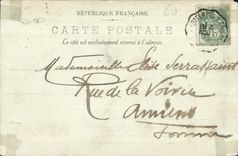 RÉPUBLIQUE FRANÇAISE
CARTE POSTALE
Ce côté est exclusivement réservé à l'adresse.
Mademoiselle
Rue de la Voirie
Amiens
Somme